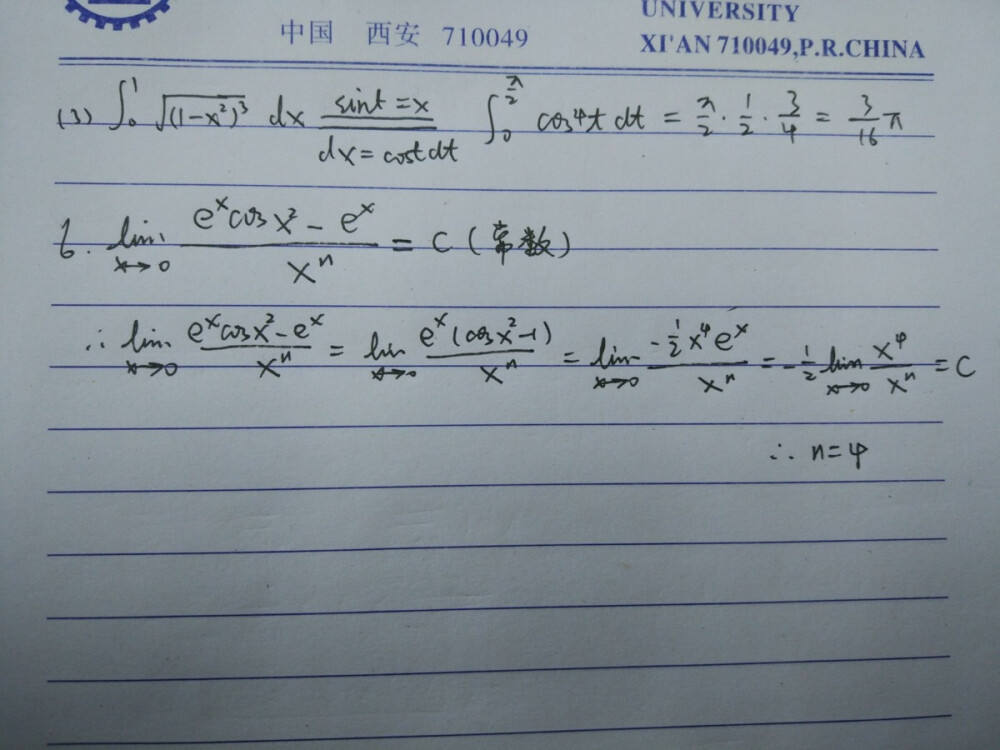 UNIVERSITY
中国 西安 710049
XI'AN 710049,P.R.CHINA
(3) ∫₀¹ √(1-x²)³ dx sint=x dx=costdt ∫₀^(π/2) cos⁴t dt = π/2 · 1/2 · 3/4 = 3/16 π
6. lim x→0 (eˣcosx² - eˣ)/xⁿ = C (常数)
∴ lim x→0 (eˣcosx²-eˣ)/xⁿ = lim x→0 eˣ(cosx²-1)/xⁿ = lim x→0 (-½x⁴eˣ)/xⁿ = -½ lim x→0 x⁴/xⁿ = C
∴ n=4